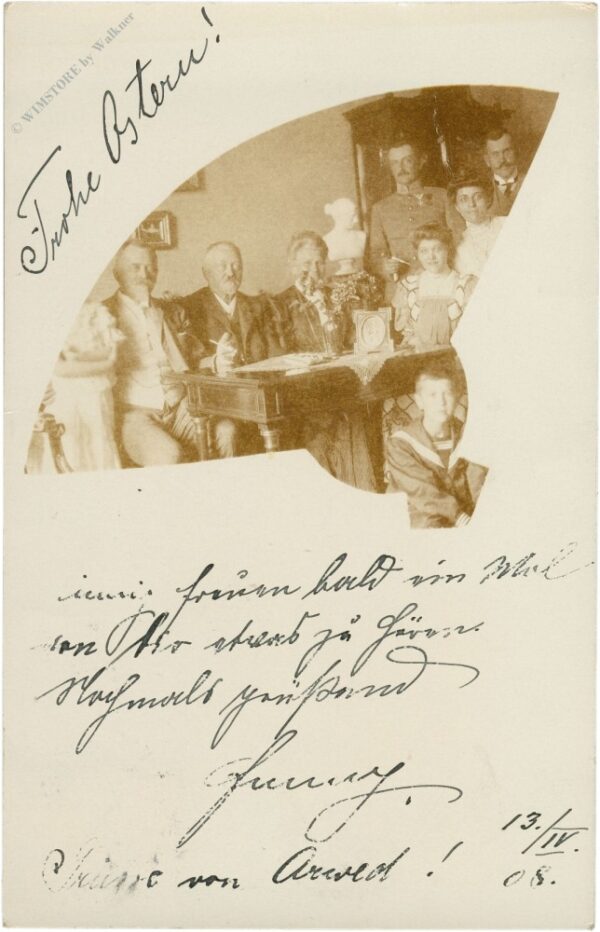 © WIMSTORE by Walkner
Frohe Ostern!
freuen bald ein Mal
von Dir etwas zu hören.
Nochmals grüßend
Fanny.
Grüsse von Arwed!
13./IV.
08.